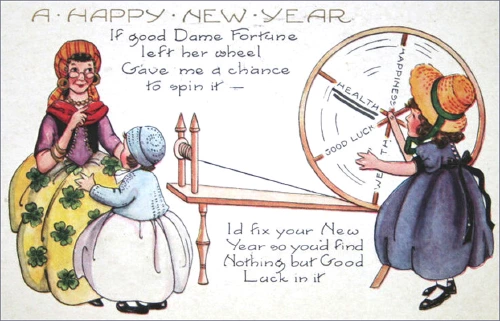 A·HAPPY·NEW·YEAR
If good Dame Fortune
left her wheel
Gave me a chance
to spin it —
HAPPINESS
HEALTH
GOOD LUCK
WEALTH
I'd fix your New
Year so you'd find
Nothing but Good
Luck in it